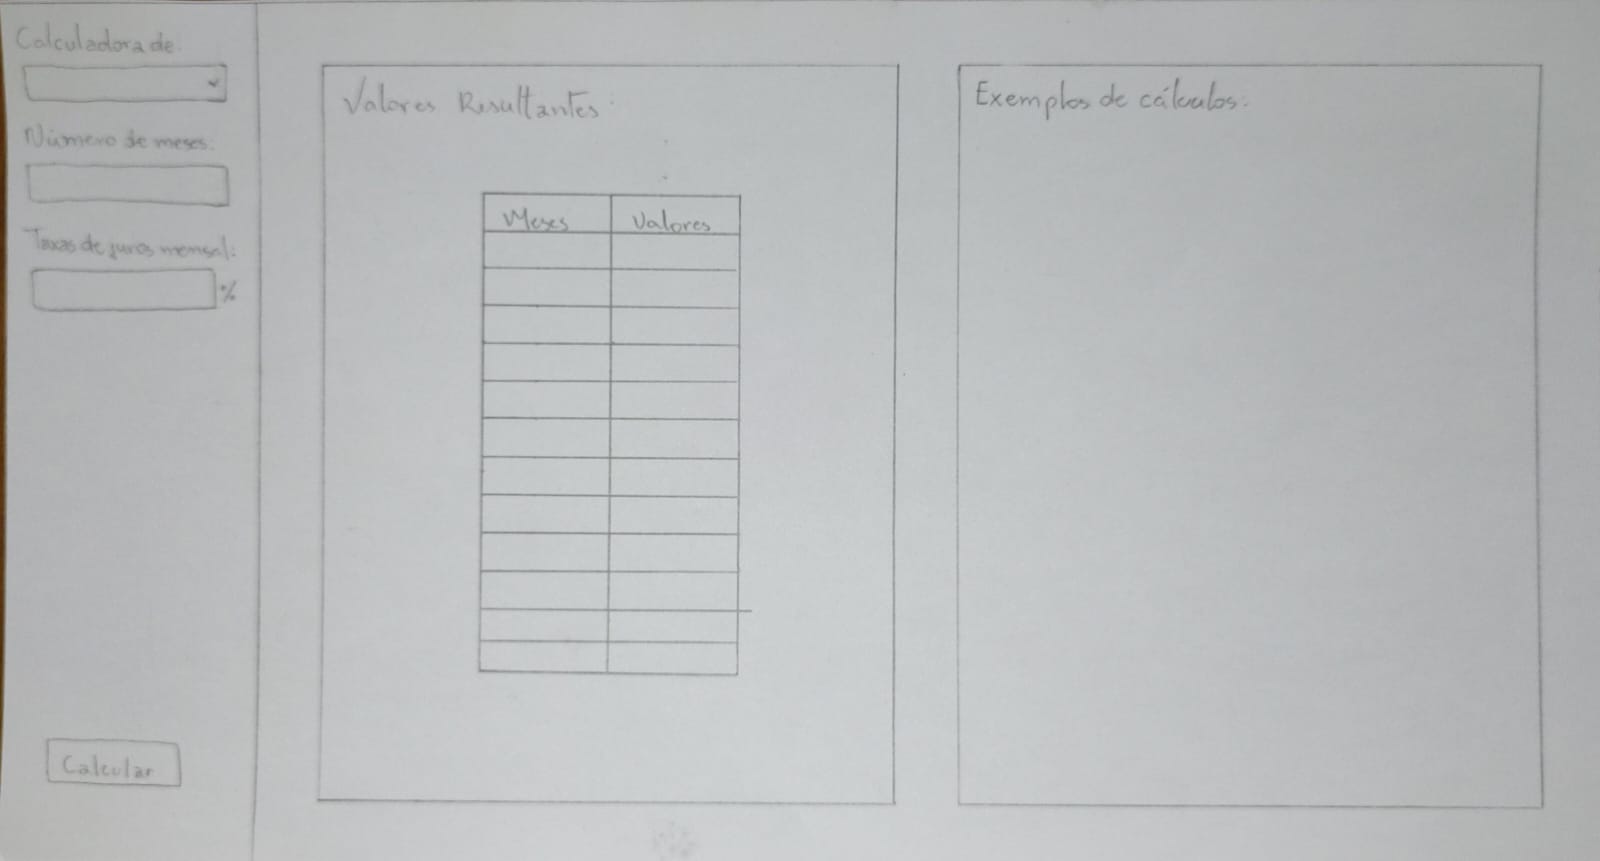 Calculadora de:
Número de meses:
Taxas de juros mensal:
%
Calcular
Valores Resultantes:
Meses Valores
Exemplos de cálculos: